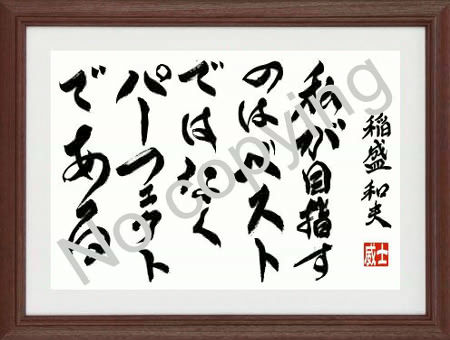 私が目指す
のはベスト
ではなく
パーフェクト
である
稲盛和夫
威士
No copying